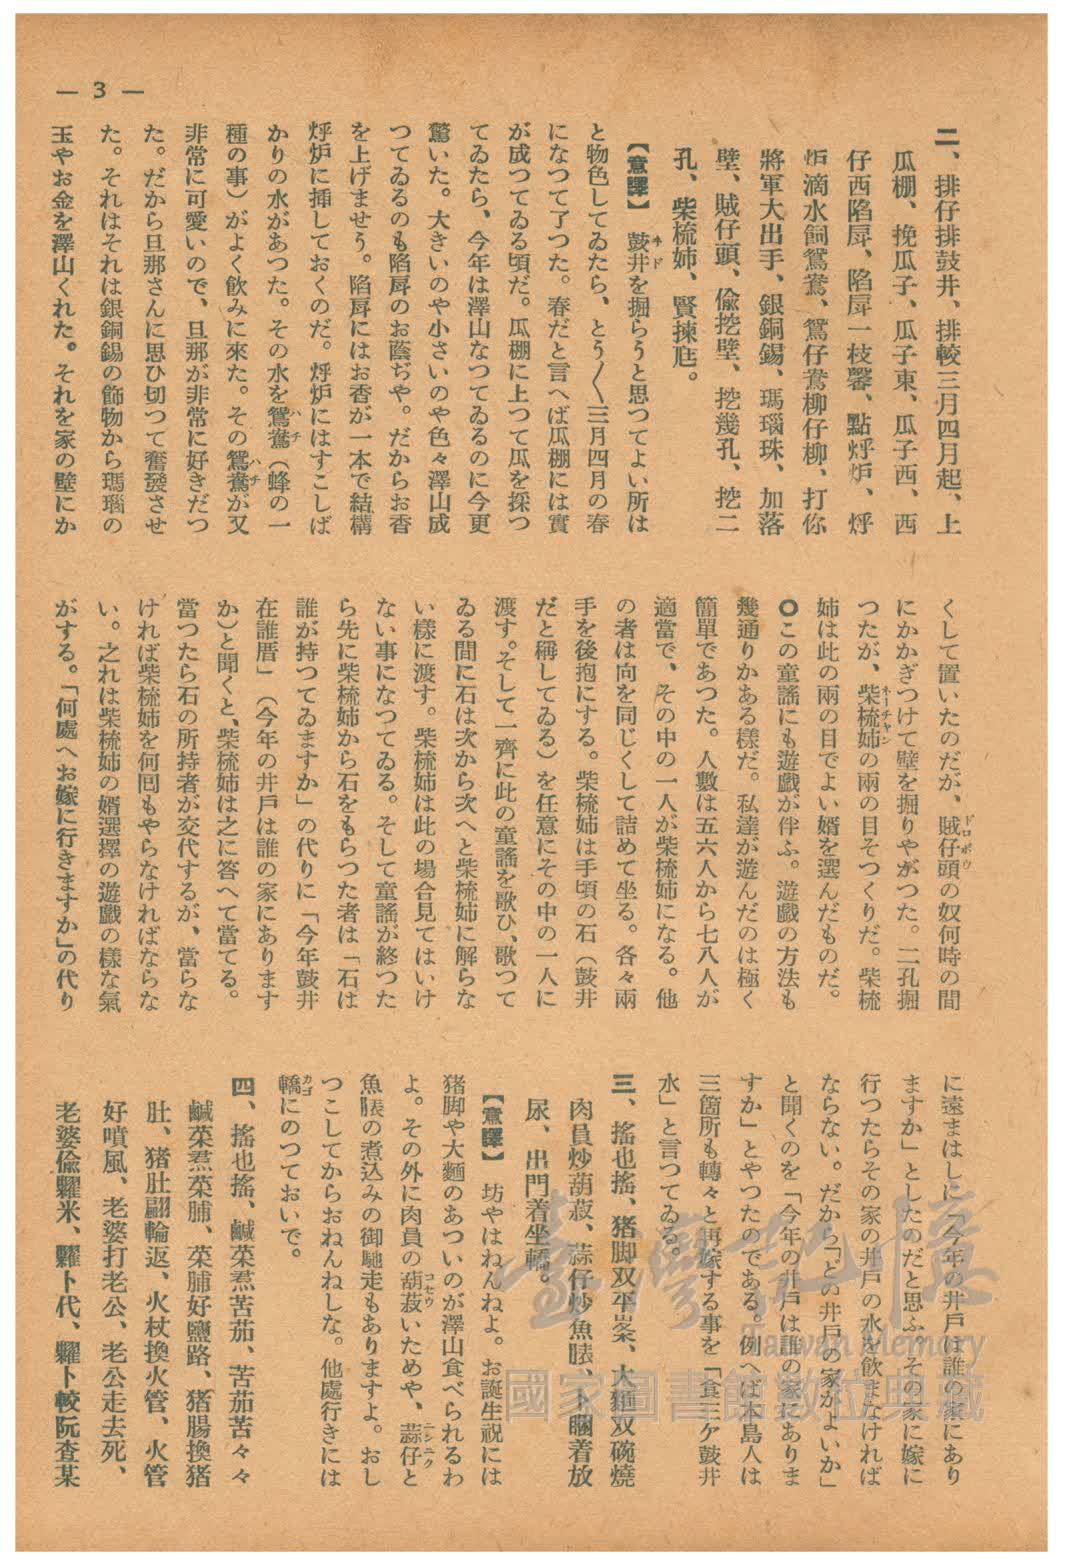 — 3 —
二、排仔排鼓井、排較三月四月起、上
瓜棚、挽瓜子、瓜子東、瓜子西、西
仔西陷屄、陷屄一枝馨、點烰炉、烰
炉滴水飼鴛鴦、鴛仔鴦柳仔柳、打你
將軍大出手、銀銅錫、瑪瑙珠、加落
壁、賊仔頭、偸挖壁、挖幾孔、挖二
孔、柴梳姉、賢揀尪。
【意譯】 鼓井を掘らうと思つてよい所は
と物色してゐたら、とう〱三月四月の春
になつて了つた。春だと言へば瓜棚には實
が成つてゐる頃だ。瓜棚に上つて瓜を採つ
てゐたら、今年は澤山なつてゐるのに今更
驚いた。大きいのや小さいのや色々澤山成
つてゐるのも陷屄のお蔭ぢや。だからお香
を上げませう。陷屄にはお香が一本で結構
烰炉に挿しておくのだ。烰炉にはすこしば
かりの水があつた。その水を鴛鴦（蜂の一
種の事）がよく飲みに來た。その鴛鴦が又
非常に可愛いので、旦那が非常に好きだつ
た。だから旦那さんに思ひ切つて奮發させ
た。それはそれは銀銅錫の飾物から瑪瑙の
玉やお金を澤山くれた。それを家の壁にか
くして置いたのだが、賊仔頭の奴何時の間
にかかぎつけて壁を掘りやがつた。二孔掘
つたが、柴梳姉の兩の目そつくりだ。柴梳
姉は此の兩の目でよい婿を選んだものだ。
○この童謠にも遊戲が伴ふ。遊戲の方法も
幾通りかある樣だ。私達が遊んだのは極く
簡單であつた。人數は五六人から七八人が
適當で、その中の一人が柴梳姉になる。他
の者は向を同じくして詰めて坐る。各々兩
手を後抱にする。柴梳姉は手頃の石（鼓井
だと稱してゐる）を任意にその中の一人に
渡す。そして一齊に此の童謠を歌ひ、歌つて
ゐる間に石は次から次へと柴梳姉に解らな
い樣に渡す。柴梳姉は此の場合見てはいけ
ない事になつてゐる。そして童謠が終つた
ら先に柴梳姉から石をもらつた者は「石は
誰が持つてゐますか」の代りに「今年鼓井
在誰厝」（今年の井戸は誰の家にあります
か）と聞くと、柴梳姉は之に答へて當てる。
當つたら石の所持者が交代するが、當らな
ければ柴梳姉を何回もやらなければならな
い。之れは柴梳姉の婿選擇の遊戲の樣な氣
がする。「何處へお嫁に行きますか」の代り
に遠まはしに「今年の井戸は誰の家にあり
ますか」としたのだと思ふ。その家に嫁に
行つたらその家の井戸の水を飲まなければ
ならない。だから「どの井戸の家がよいか」
と聞くのを「今年の井戸は誰の家にありま
すか」とやつたのである。例へば本島人は
三箇所も轉々と再嫁する事を「食三ケ鼓井
水」と言つてゐる。
三、搖也搖、猪脚双平岺、大麵双碗燒
肉員炒葫蔜、蒜仔炒魚脿、卜睏着放
尿、出門着坐轎。
【意譯】 坊やはねんねよ。お誕生祝には
猪脚や大麵のあついのが澤山食べられるわ
よ。その外に肉員の葫蔜いためや、蒜仔と
魚脿の煮込みの御馳走もありますよ。おし
つこしてからおねんねしな。他處行きには
轎にのつておいで。
四、搖也搖、鹹菜焄苦茄、苦茄苦々々
鹹菜焄菜脯、菜脯好鹽路、猪腸換猪
肚、猪肚翩輪返、火杖換火管、火管
好噴風、老婆打老公、老公走去死、
老婆偸糶米、糶卜代、糶卜較阮查某
臺灣記憶
Taiwan Memory
國家圖書館數位典藏